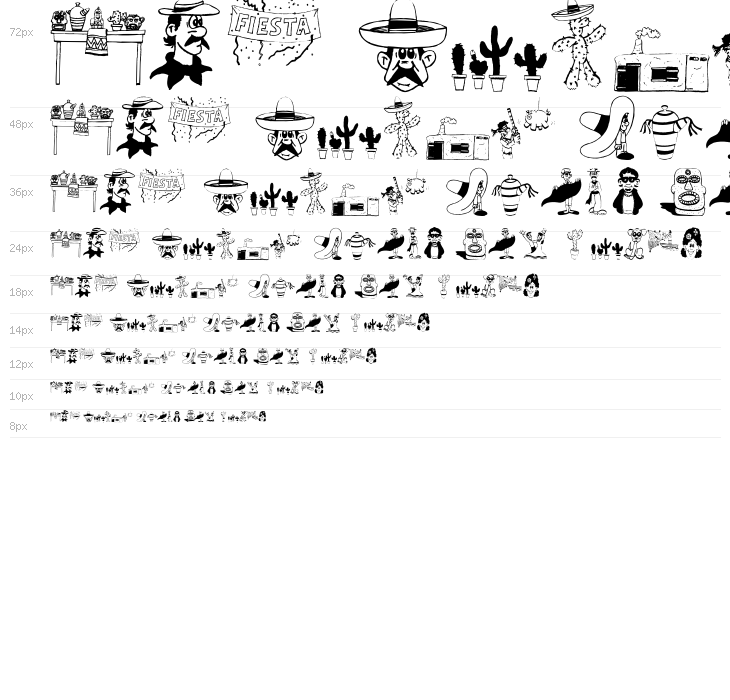 72px
FIESTA
48px
FIESTA
36px
FIESTA
24px
18px
14px
12px
10px
8px